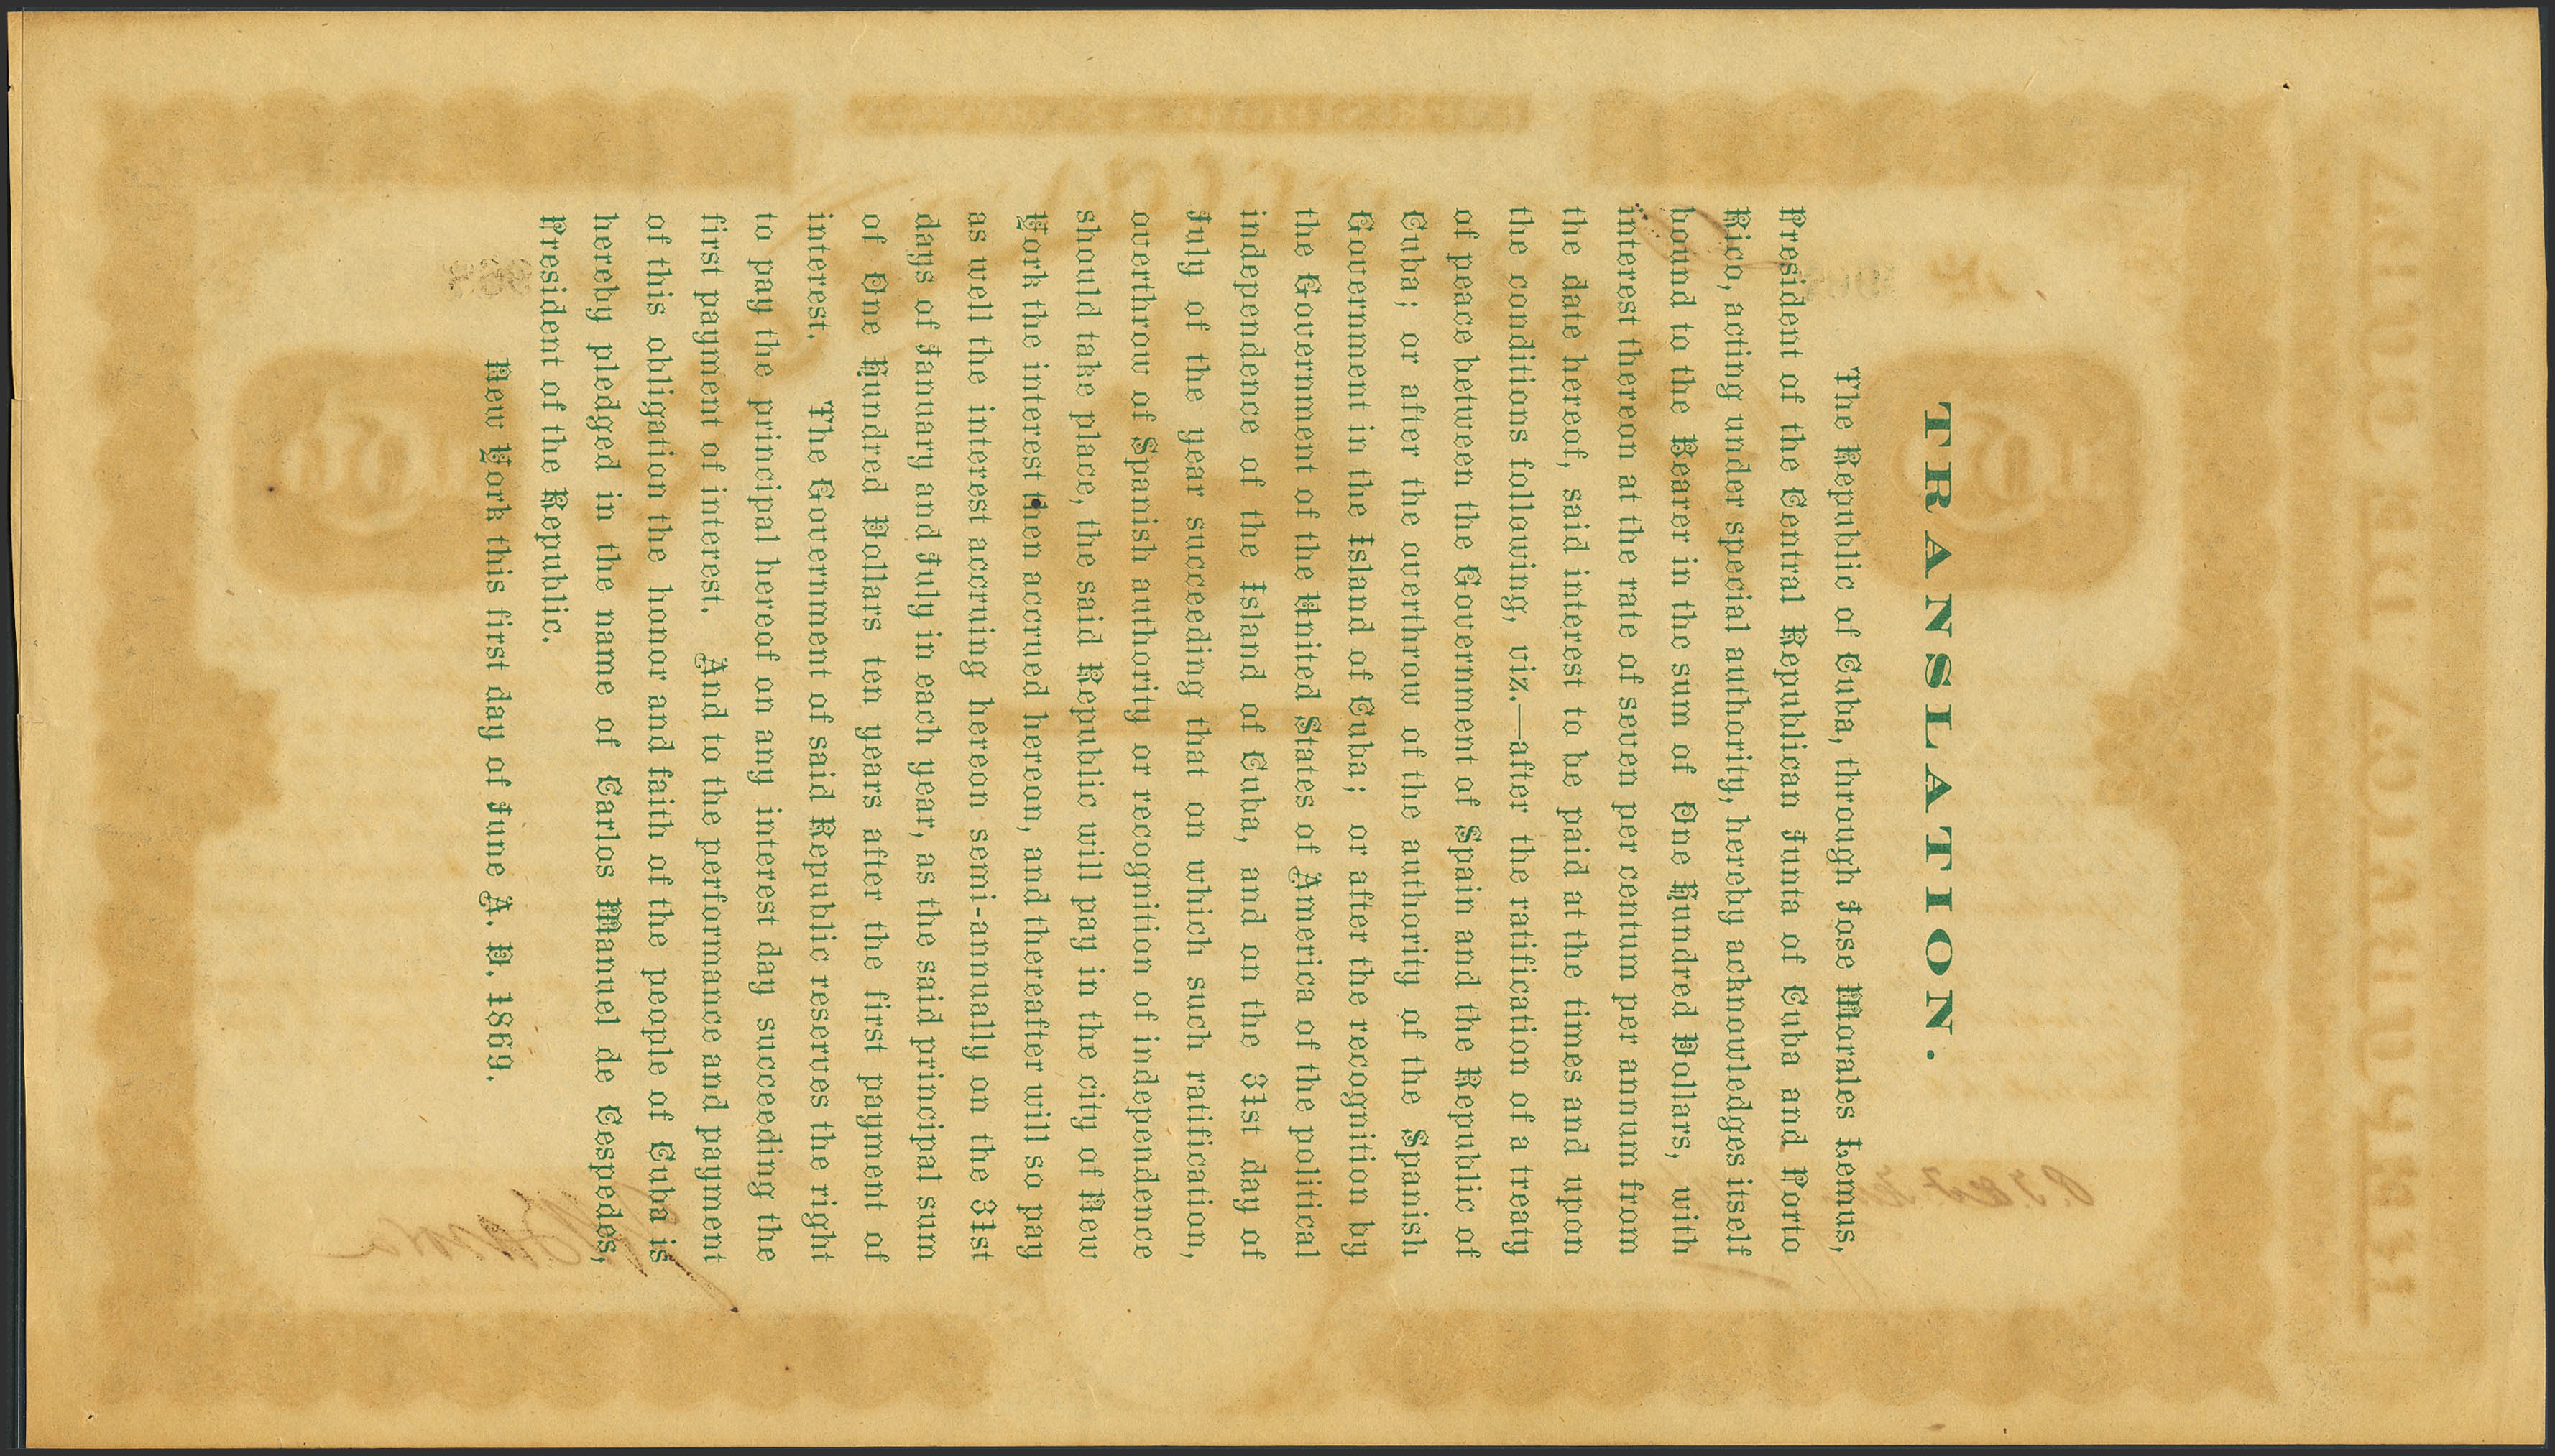 TRANSLATION.
The Republic of Cuba, through Jose Morales Lemus,
President of the Central Republican Junta of Cuba and Porto
Rico, acting under special authority, hereby acknowledges itself
bound to the Bearer in the sum of One Hundred Dollars, with
interest thereon at the rate of seven per centum per annum from
the date hereof, said interest to be paid at the times and upon
the conditions following, viz.—after the ratification of a treaty
of peace between the Government of Spain and the Republic of
Cuba; or after the overthrow of the authority of the Spanish
Government in the Island of Cuba; or after the recognition by
the Government of the United States of America of the political
independence of the Island of Cuba, and on the 31st day of
July of the year succeeding that on which such ratification,
overthrow of Spanish authority or recognition of independence
should take place, the said Republic will pay in the city of New
York the interest then accrued hereon, and thereafter will so pay
as well the interest accruing hereon semi-annually on the 31st
days of January and July in each year, as the said principal sum
of One Hundred Dollars ten years after the first payment of
interest. The Government of said Republic reserves the right
to pay the principal hereof on any interest day succeeding the
first payment of interest. And to the performance and payment
of this obligation the honor and faith of the people of Cuba is
hereby pledged in the name of Carlos Manuel de Cespedes,
President of the Republic.
New York this first day of June A. D. 1869.